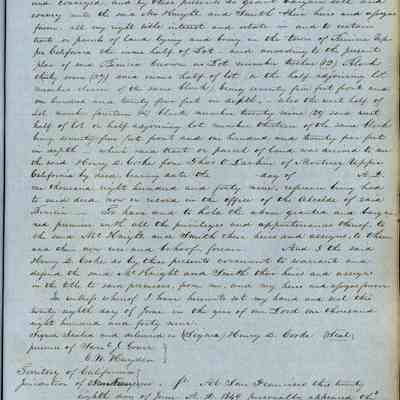 and conveyed, and by these presents do grant bargain sell and
convey unto the said McKnight and Smith their heirs and assigns
forever, all my right title interest and estate in and to a certain
tract or parcel of land lying and being in the town of Benicia Up-
per California the same half of Lot and according to the present
plan of said Benicia known as Lot number twelve (12) Block
thirty nine (39) said same half of lot, &
number eleven of the same block, being seventy five feet front and
one hundred and twenty five feet in depth, also the west half of
Lot number fourteen in block number twenty nine (29) said west
half of lot or half adjoining lot number thirteen of the same block
being seventy five feet front and one hundred and twenty five feet
in depth, which same tract or parcel of land was deeded to me
the said Henry D. Cooke from Thos O Larkin of Monterey Upper
California by deed bearing date the day of A.D.
one thousand eight hundred and forty nine, reference being had
to said deed now on record in the office of the Alcalde of said
Benicia — To have and to hold the above granted and barg-
ned premises with all the privileges and appurtenances thereof to
the said McKnight and Smith their heirs and assigns to them
and their own use and behoof forever. And I the said
Henry D. Cooke do by these presents covenant to warrant and
defend the said McKnight and Smith their heirs and assigns
in the title to said premises, from me, and my heirs and assigns forever
In witness whereof I have hereunto set my hand and seal this
twenty eighth day of June in the year of our Lord one thousand
eight hundred and forty nine.
Signed Sealed and delivered in (Signed) Henry D. Cooke Seal
presence of J. Grove
E. W. Haughton
Territory of California
Jurisdiction of San Francisco ss. At San Francisco this twenty
eighth day of June A.D. 1849 personally appeared the